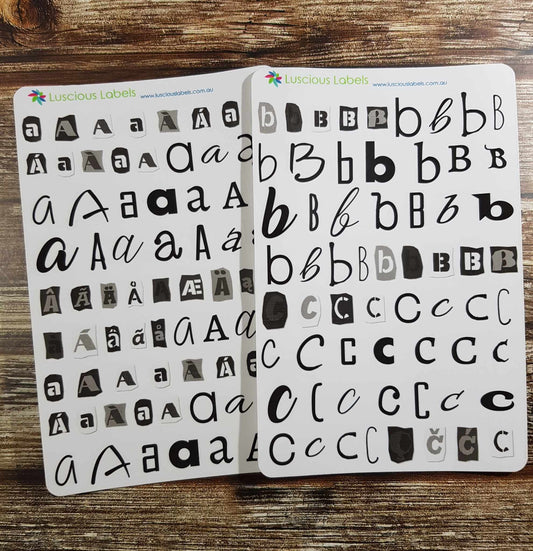 Luscious Labels www.lusciouslabels.com.au
a A A a À Á a
Á a À a A a a A
a A a a a A
a A a a A a A
Â Ã Ä Å Æ Ä
â ã å A A A
a A A a À Á
Á a À a A a a
a A a a a A
Luscious Labels www.lusciouslabels.com.au
b b B B B b b b B
b B b b b B B
b B b b b b b
b b b b b b B B B
C c C c C C C C
C C C C C C C
C C C C C C C
C c c C C Č Ć